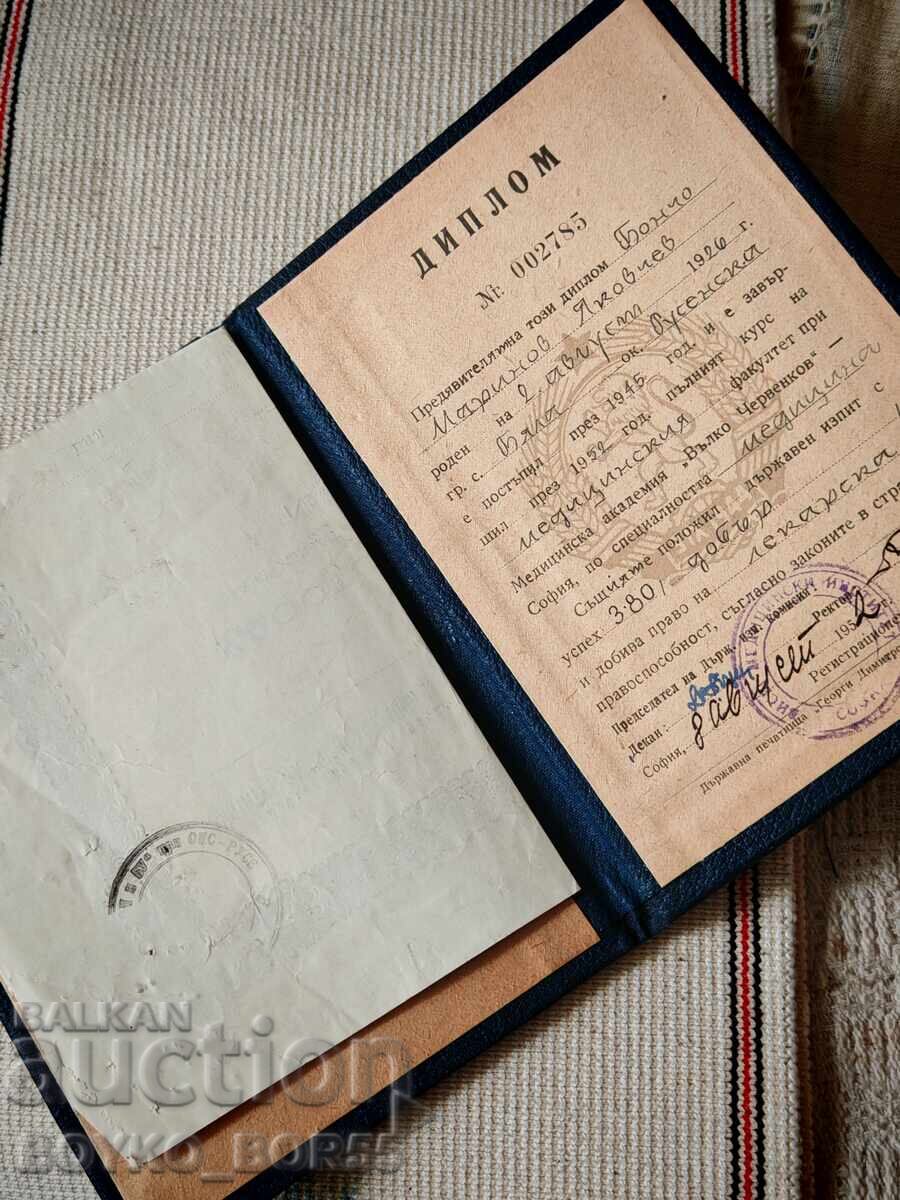 ДИПЛОМ
№ 002785
Предявителятна този диплом Бончо
Маринов Яковчев
роден на 2 август 1926 г.
гр. с. Бяла ок. Русенска
е постъпил през 1945 год. и е завър-
шил през 1952 год. пълният курс на
медицинския факултет при
Медицинска академия „Вълко Червенков“ —
София, по специалността медицина
Същияте положил държавен изпит с
успех 3·80/ добър
и добива право на лекарска
правоспособност, съгласно законите в стра
Председател на Държ. изп. комисия
Декан: Ректор
София, август 1952
Регистрационе
Държавна печатница „Георги Димитро
ОНС-РУСЕ
BALKAN
auction
BOYKO_BOR55